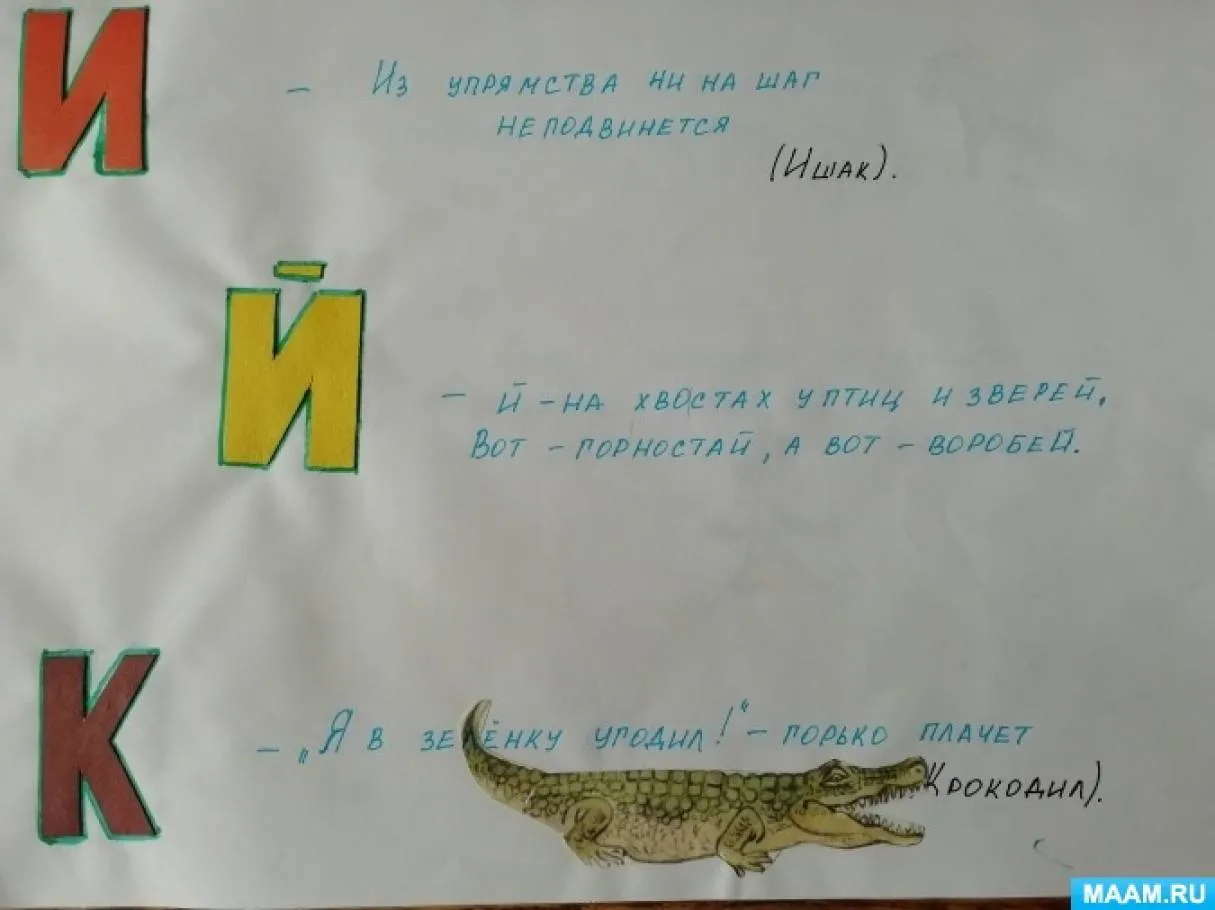 И
– Из упрямства ни на шаг
неподвинется
(Ишак).
Й
– Й – на хвостах у птиц и зверей,
Вот – горностай, а вот – воробей.
К
– „Я в зелёнку угодил!“ – горько плачет
(Крокодил).
MAAM.RU